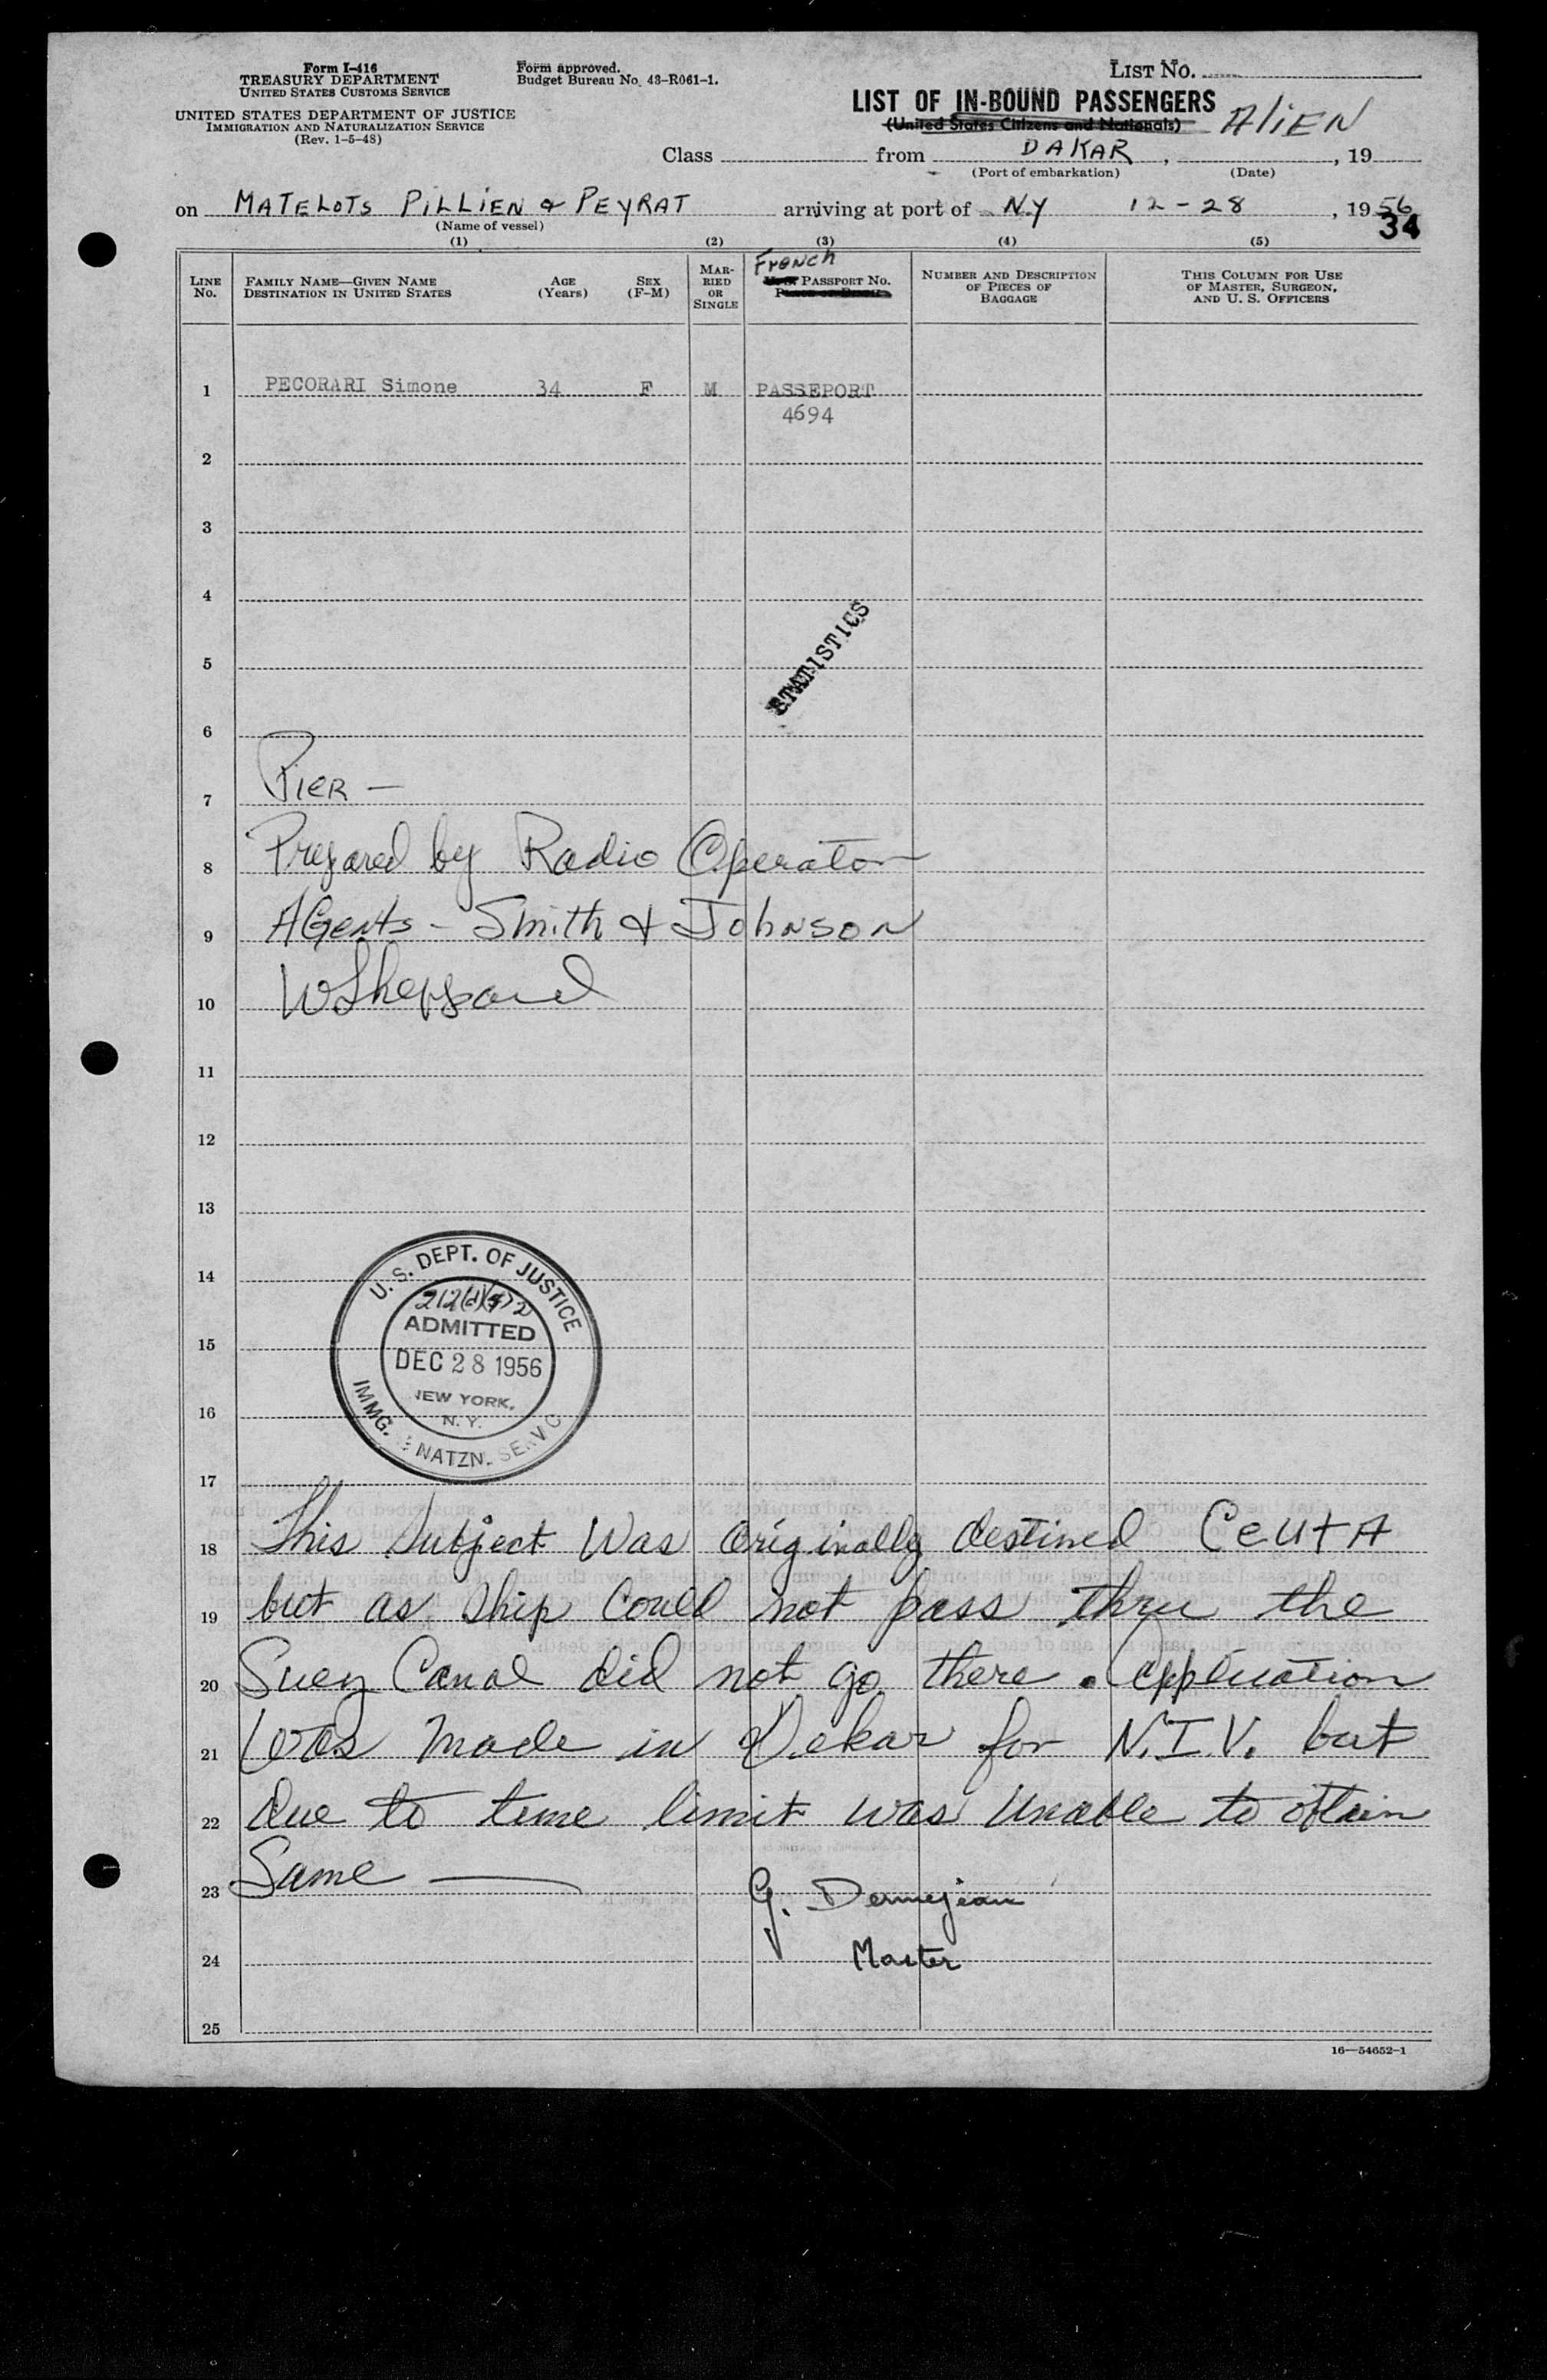 Form I-416
TREASURY DEPARTMENT
UNITED STATES CUSTOMS SERVICE
UNITED STATES DEPARTMENT OF JUSTICE
IMMIGRATION AND NATURALIZATION SERVICE
(Rev. 1-5-48)
Form approved.
Budget Bureau No. 43-R061-1.
LIST NO.
LIST OF IN-BOUND PASSENGERS
(United States Citizens and Nationals) AliEN
Class from DAKAR , , 19
(Port of embarkation) (Date)
on MATELOTS PiLLiEN & PEYRAT arriving at port of N.Y 12-28 , 1956
(Name of vessel)
34
(1) (2) (3) (4) (5)
French
LINE No. FAMILY NAME—GIVEN NAME DESTINATION IN UNITED STATES AGE (Years) SEX (F-M) MARRIED OR SINGLE U.S. PASSPORT NO. NUMBER AND DESCRIPTION OF PIECES OF BAGGAGE THIS COLUMN FOR USE OF MASTER, SURGEON, AND U. S. OFFICERS
1 PECORARI Simone 34 F M PASSEPORT
4694
2
3
4
STATISTICS
5
6
7 PIER —
8 Prepared by Radio Operator
9 AGents - Smith & Johnson
10 WSheppard
11
12
13
14
15
16
17
U. S. DEPT. OF JUSTICE
ADMITTED
DEC 28 1956
NEW YORK,
N. Y.
IMMG. & NATZN. SERVIC
18 This Subject Was Originally destined CeutA
19 but as Ship Could not pass thru the
20 Suez Canal did not go there. Application
21 Was Made in Dekar for N.I.V. but
22 due to time limit was Unable to obtain
23 Same —
G. Dermejean
24 Master
25
16—54652-1